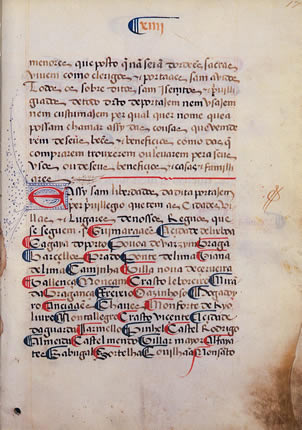 xiiij
menores que posto q̃ nã seiã dordẽes sacras
viuem como clerigos
Todos os sobre ditos sam Isemtos & priuili
giados de todo dr̃to de portajem nem vsajem
nem custumajem per qual quer nome que a
possam chamar assy das cousas que vende
rem de seus bẽes & beneficios como das q̃
comprarem trouxerem ou leuarem pera seus
vsos ou de seus beneficios & casas & famili
ares
E Assy sam liberdados da dita portajem
per priuilegio que tem as Cidades vi
llas & Lugares de nossos Regnos que
se seguem s Guimaraães Cidade de lixboa
Gaya do porto Pouoa de varzim Braga
Barcellos Prado Ponte de lima Viana
de lima Caminha Villa noua de cerueira
Vallença Monçam Crasto leboreiro Mirã
da Bragança Freixo Oazinhoso Mogadoy
ro Anciaães Chaues Monforte de Ryo
liure Montallegre Crasto vicente Cidade
da guarda Jarmello Pinhel Castel Rodrigo
Almeida Castel mendo Villar mayor Alfaya
tes Sabugal Sortelha Couilhaã Monsãto